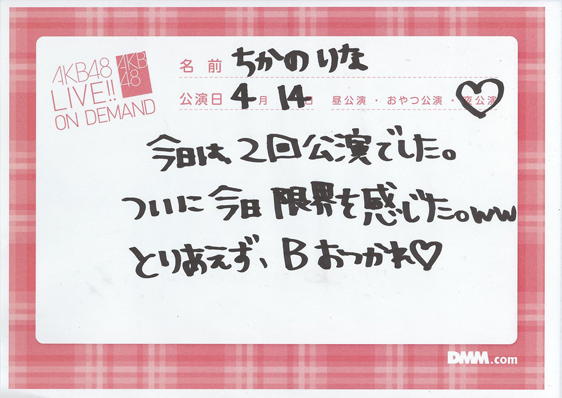 AKB48
LIVE!!
ON DEMAND
AKB
48
名前 ちかの りな
公演日 4月 14日 昼公演・おやつ公演・夜公演
今日は、2回公演でした。
ついに今日 限界を感じた。ww
とりあえず、Bおつかれ♡
DMM.com